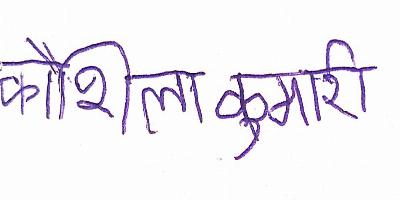 कौशिला कुमारी